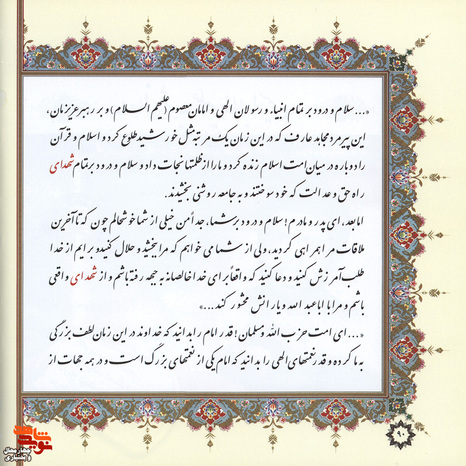 «... سلام و درود بر تمام انبیاء و رسولان الهی و امامان معصوم (علیهم السلام) و بر رهبر عزیزمان،
این پیرمرد مجاهد عارف که در این زمان یک مرتبه مثل خورشید طلوع کرد و اسلام و قرآن
را دوباره در میان امت اسلام زنده کرد و ما را از ظلمتها نجات داد و سلام و درود بر تمام شهدای
راه حق و عدالت که خود سوختند و به جامعه روشنی بخشیدند.
اما بعد، ای پدر و مادرم! سلام و درود بر شما، جداً من خیلی از شما خوشحالم چون که تا آخرین
ملاقات مرا همراهی کردید، ولی از شما می خواهم که مرا ببخشید و حلال کنید و برایم از خدا
طلب آمرزش کنید و دعا کنید که واقعاً برای خدا خالصانه به جبهه رفته باشم و از شهدای واقعی
باشم و مرا با اباعبدالله و یارانش محشور کند...»
«... ای امت حزب الله و مسلمان! قدر امام را بدانید که خداوند در این زمان لطف بزرگی
به ما کرده و قدر نعمتهای الهی را بدانید که امام یکی از نعمتهای بزرگ است و در همه جهات از
۹۰